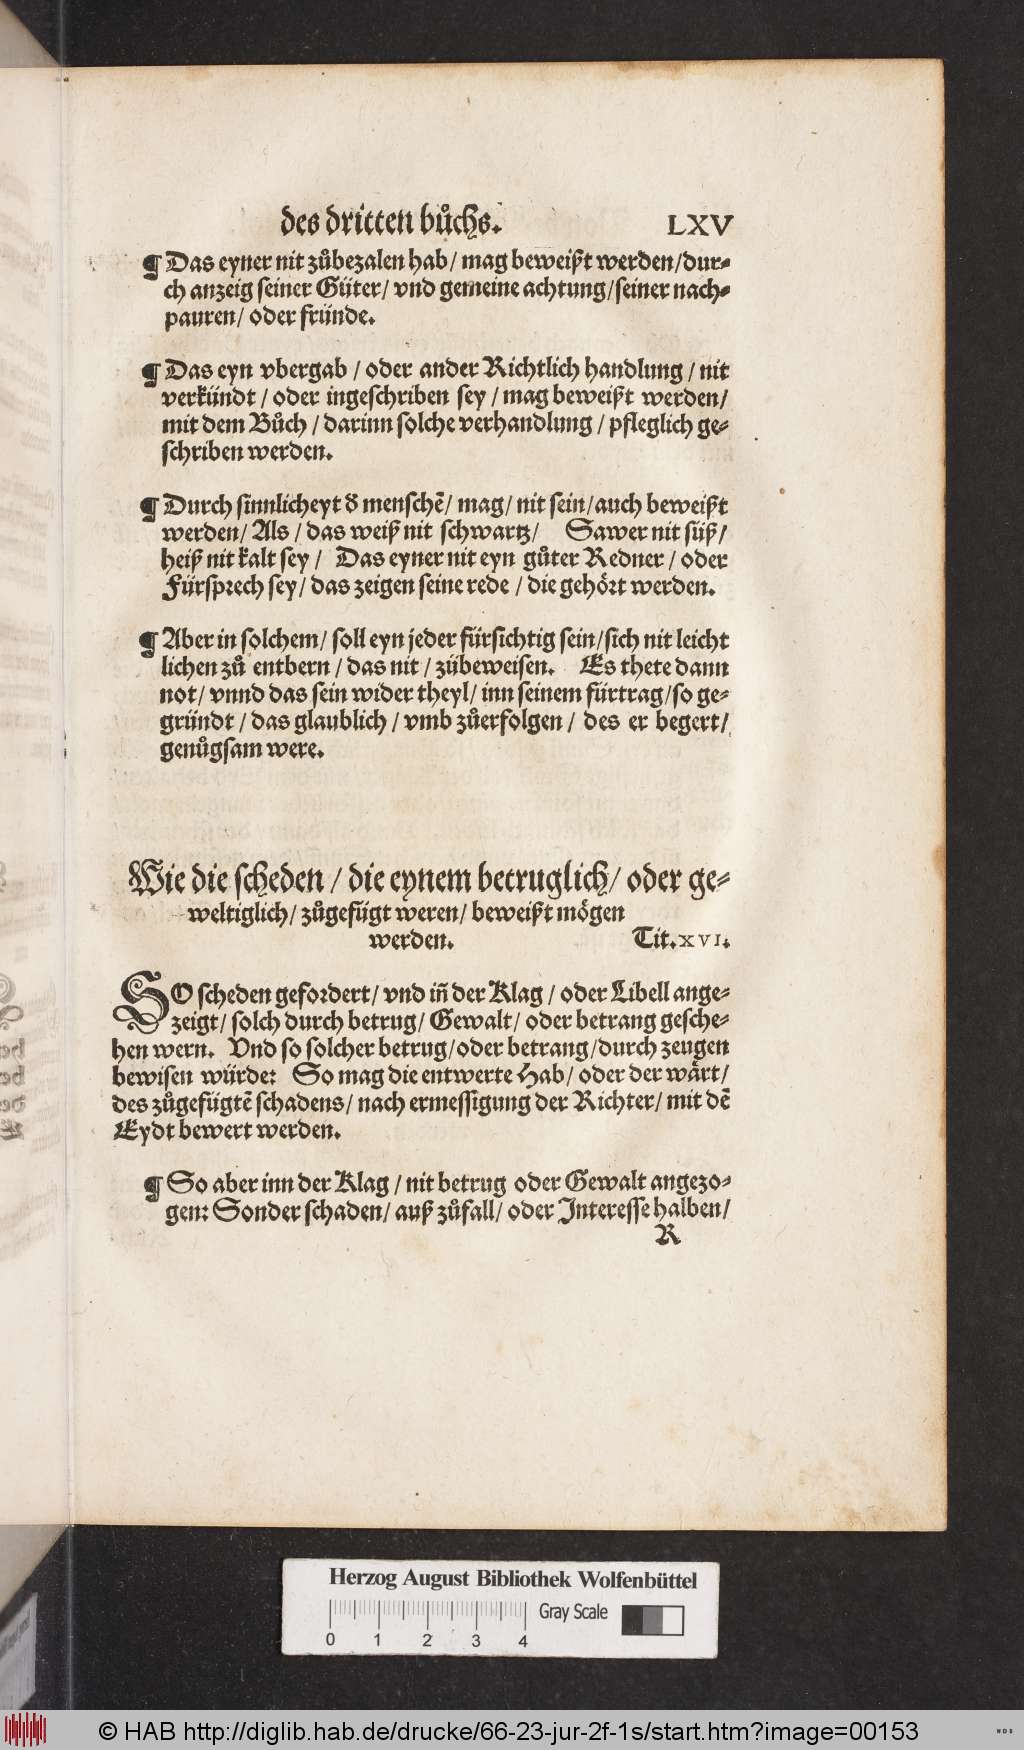 des dritten bůchs. LXV
¶ Das eyner nit zůbezalen hab/ mag beweißt werden/dur⸗
ch anzeig seiner Güter/ vnd gemeine achtung/seiner nach⸗
pauren/ oder fründe.
¶ Das eyn vbergab / oder ander Richtlich handlung / nit
verkündt / oder ingeschriben sey / mag beweißt werden/
mit dem Bůch / darinn solche verhandlung / pfleglich ge⸗
schriben werden.
¶ Durch sinnlicheyt d̕ menschẽ/ mag/ nit sein/auch beweißt
werden/ Als / das weiß nit schwartz/ Sawer nit süß/
heiß nit kalt sey / Das eyner nit eyn gůter Redner / oder
Fürsprech sey/ das zeigen seine rede / die gehört werden.
¶ Aber in solchem/ soll eyn jeder fürsichtig sein/sich nit leicht
lichen zů entbern / das nit / zübeweisen. Es thete dann
not/ vnnd das sein wider theyl/ inn seinem fürtrag/so ge⸗
gründt / das glaublich / vmb zůerfolgen / des er begert/
genůgsam were.
Wie die scheden / die eynem betruglich/ oder ge⸗
weltiglich/ zůgefügt weren/ beweißt mögen
werden. Tit.XVI.
SO scheden gefordert/ vnd iñ der Klag / oder Libell ange⸗
zeigt/ solch durch betrug/ Gewalt/ oder betrang gesche⸗
hen wern. Vnd so solcher betrug/oder betrang/durch zeugen
bewisen würde: So mag die entwerte Hab/ oder der wärt/
des zůgefügtẽ schadens/ nach ermessigung der Richter/ mit dẽ
Eydt bewert werden.
¶ So aber inn der Klag / nit betrug oder Gewalt angezo⸗
gen: Sonder schaden/ auß zůfall/ oder Interesse halben/
R
Herzog August Bibliothek Wolfenbüttel
0 1 2 3 4 Gray Scale
© HAB http://diglib.hab.de/drucke/66-23-jur-2f-1s/start.htm?image=00153